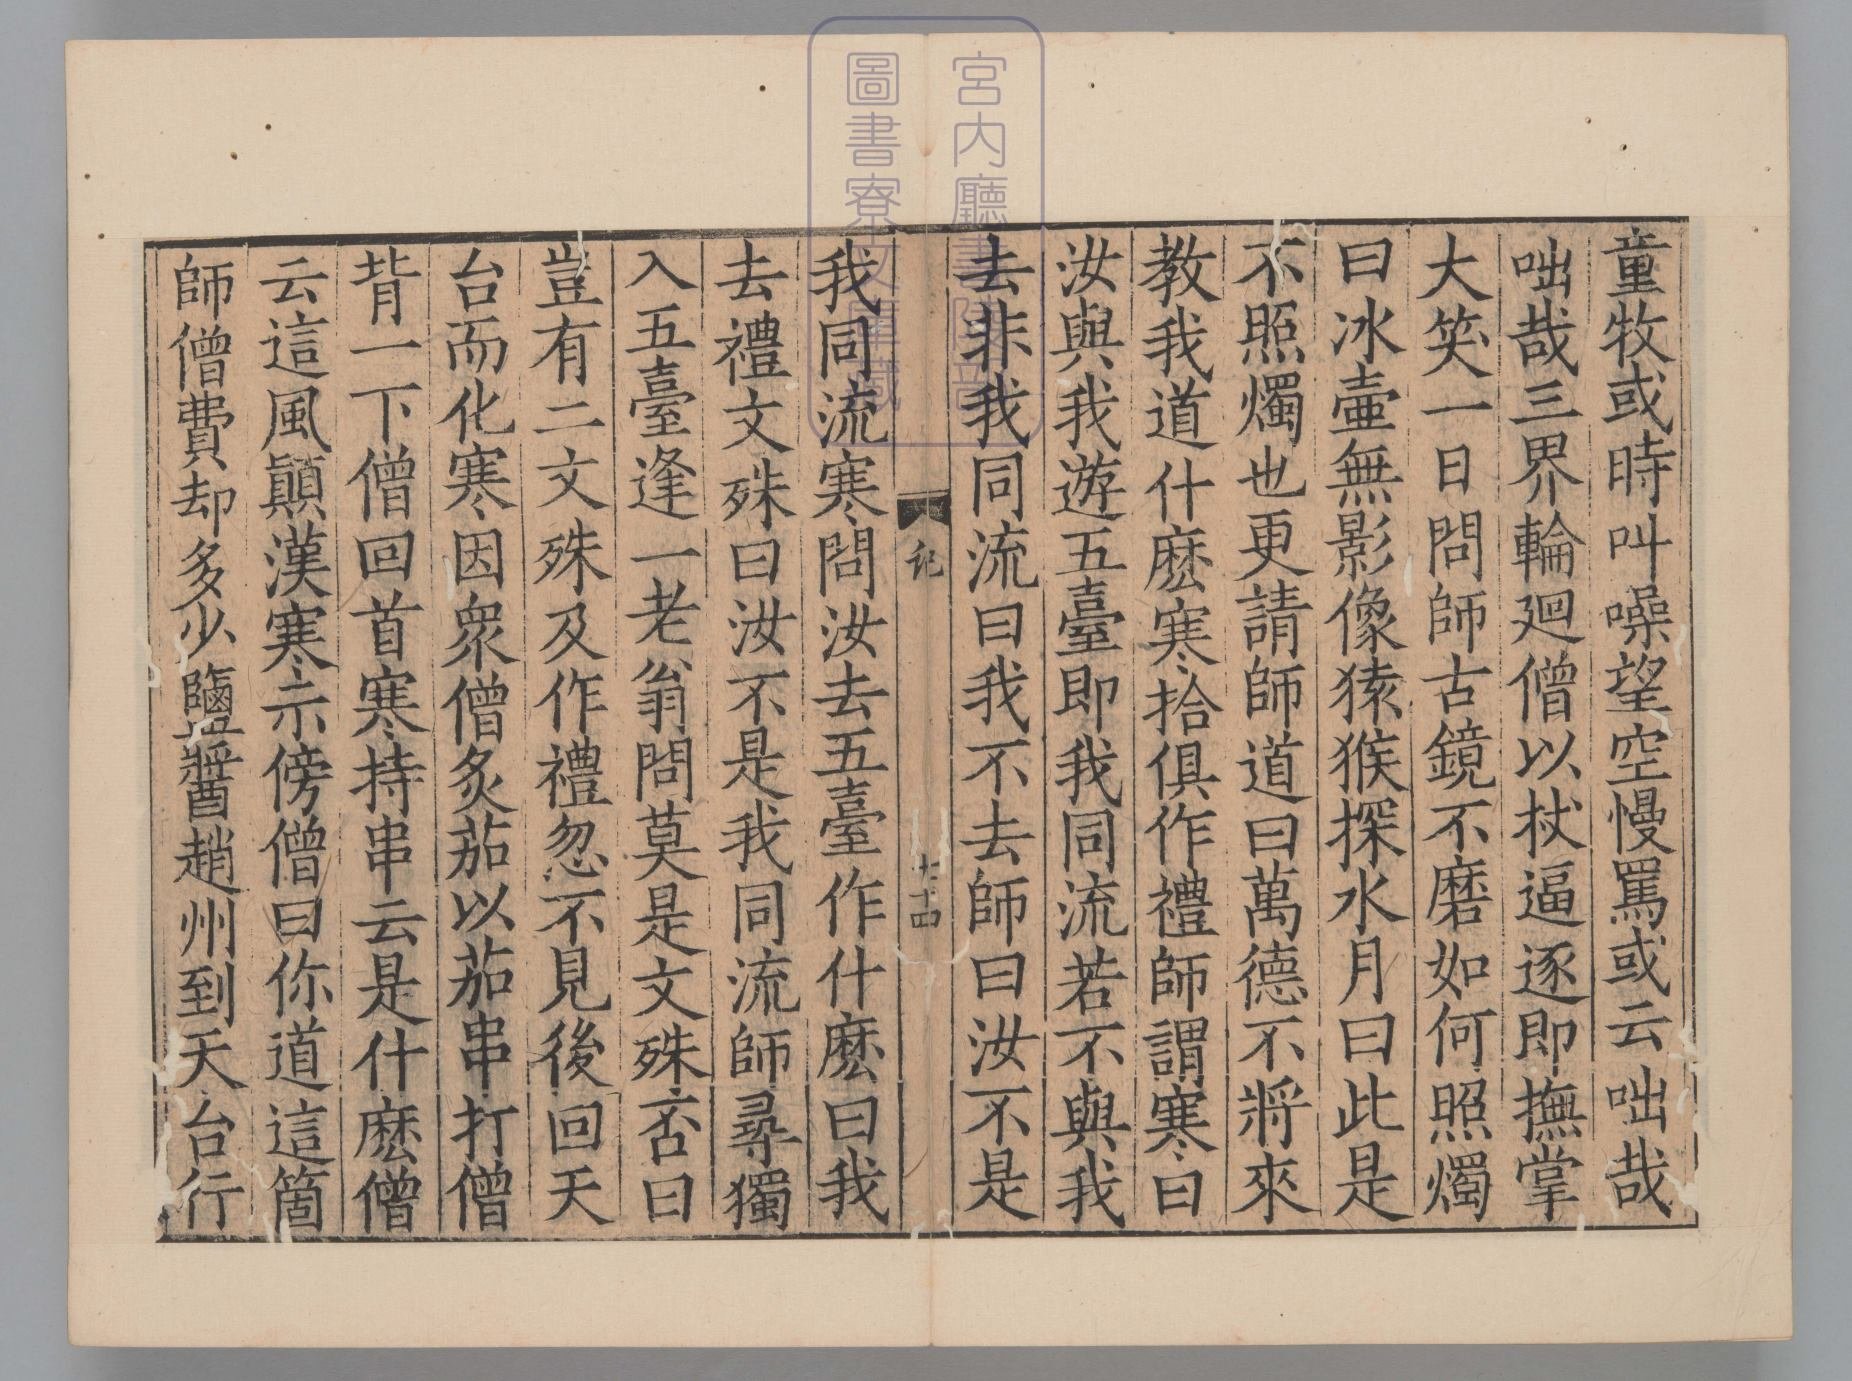 童牧或時叫噪望空慢罵或云咄哉
咄哉三界輪廻僧以杖逼逐即撫掌
大笑一日問師古鏡不磨如何照燭
曰冰壷無影像猿猴探水月曰此是
不照燭也更請師道曰萬德不將來
教我道什麽寒拾俱作禮師謂寒曰
汝與我遊五臺即我同流若不與我
去非我同流曰我不去師曰汝不是
記
七十四
我同流寒問汝去五臺作什麽曰我
去禮文殊曰汝不是我同流師尋獨
入五臺逢一老翁問莫是文殊否曰
豈有二文殊及作禮忽不見後回天
台而化寒因衆僧炙茄以茄串打僧
背一下僧回首寒持串云是什麽僧
云這風顛漢寒示傍僧曰你道這箇
師僧費却多少鹽醬趙州到天台行
宮内廳書陵部
圖書寮文庫藏